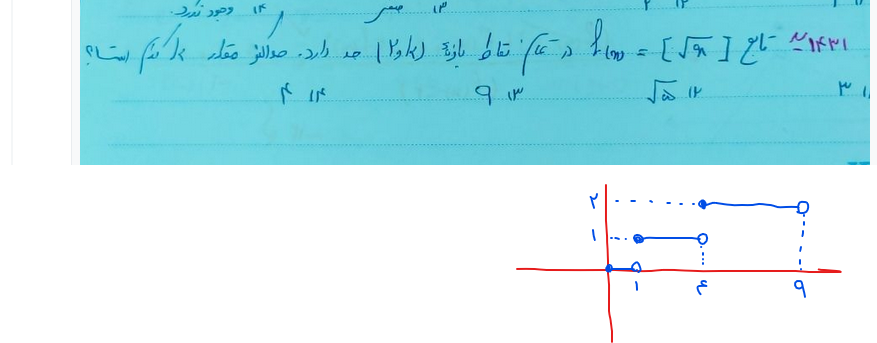 ۱۴) وجود ندارد. ۱۳) صفر ۱۲) ۲
۱۴۳۱- تابع f(x) = [√x] در تمام نقاط بازهٔ (۲ و k) حد دارد. حداکثر مقدار k کدام است؟
۱) ۳ ۲) √۵ ۳) ۹ ۴) ۴
۲
۱
۱ ۴ ۹